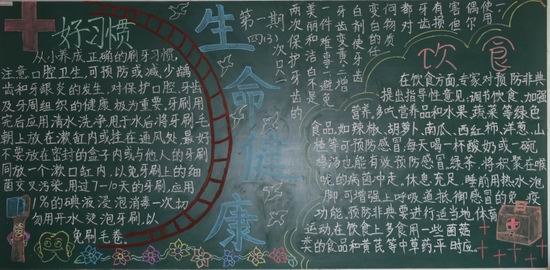 好习惯
从小养成正确的刷牙习惯,
注意口腔卫生,可预防或减少龋
齿和牙眼炎的发生,对保护口腔,牙齿
及牙周组织的健康极为重要,牙刷用
完后应用清水洗净,甩干水后将牙刷毛
朝上放在漱缸内或挂在通风处,最好
不要放在密封的盒子内或与他人的牙刷
同放一个漱口缸内,以免牙刷上的细
菌交叉污染,用过7-10天的牙刷,应用
1%的碘液浸泡消毒一次,切
勿用开水烫泡牙刷,以
免刷毛卷。
生命健康
第一期
四(3)
两次保护牙齿
美丽和洁白不是
一件难事,避免
牙齿变黄,增
白剂使牙齿
变白的任
何物质
都对
牙齿
有损
害,偶尔
饮食
在饮食方面,专家对预防非典
提出指导性意见:调节饮食,加强
营养,多吃营养品和水果,蔬菜等绿色
食品,如辣椒、胡萝卜、南瓜、西红柿、洋葱、山
楂等可预防感冒,每天喝一杯酸奶或一碗
鸡汤也能有效预防感冒,绿茶,将积聚在喉
咙的病菌冲走。休息充足,睡前用热水泡
脚,可增强上呼吸道抵御感冒的免疫
功能。预防非典要进行适当地体育
运动,在饮食上多食用一些菌菇
类的食品和黄芪等中草药,平时应.